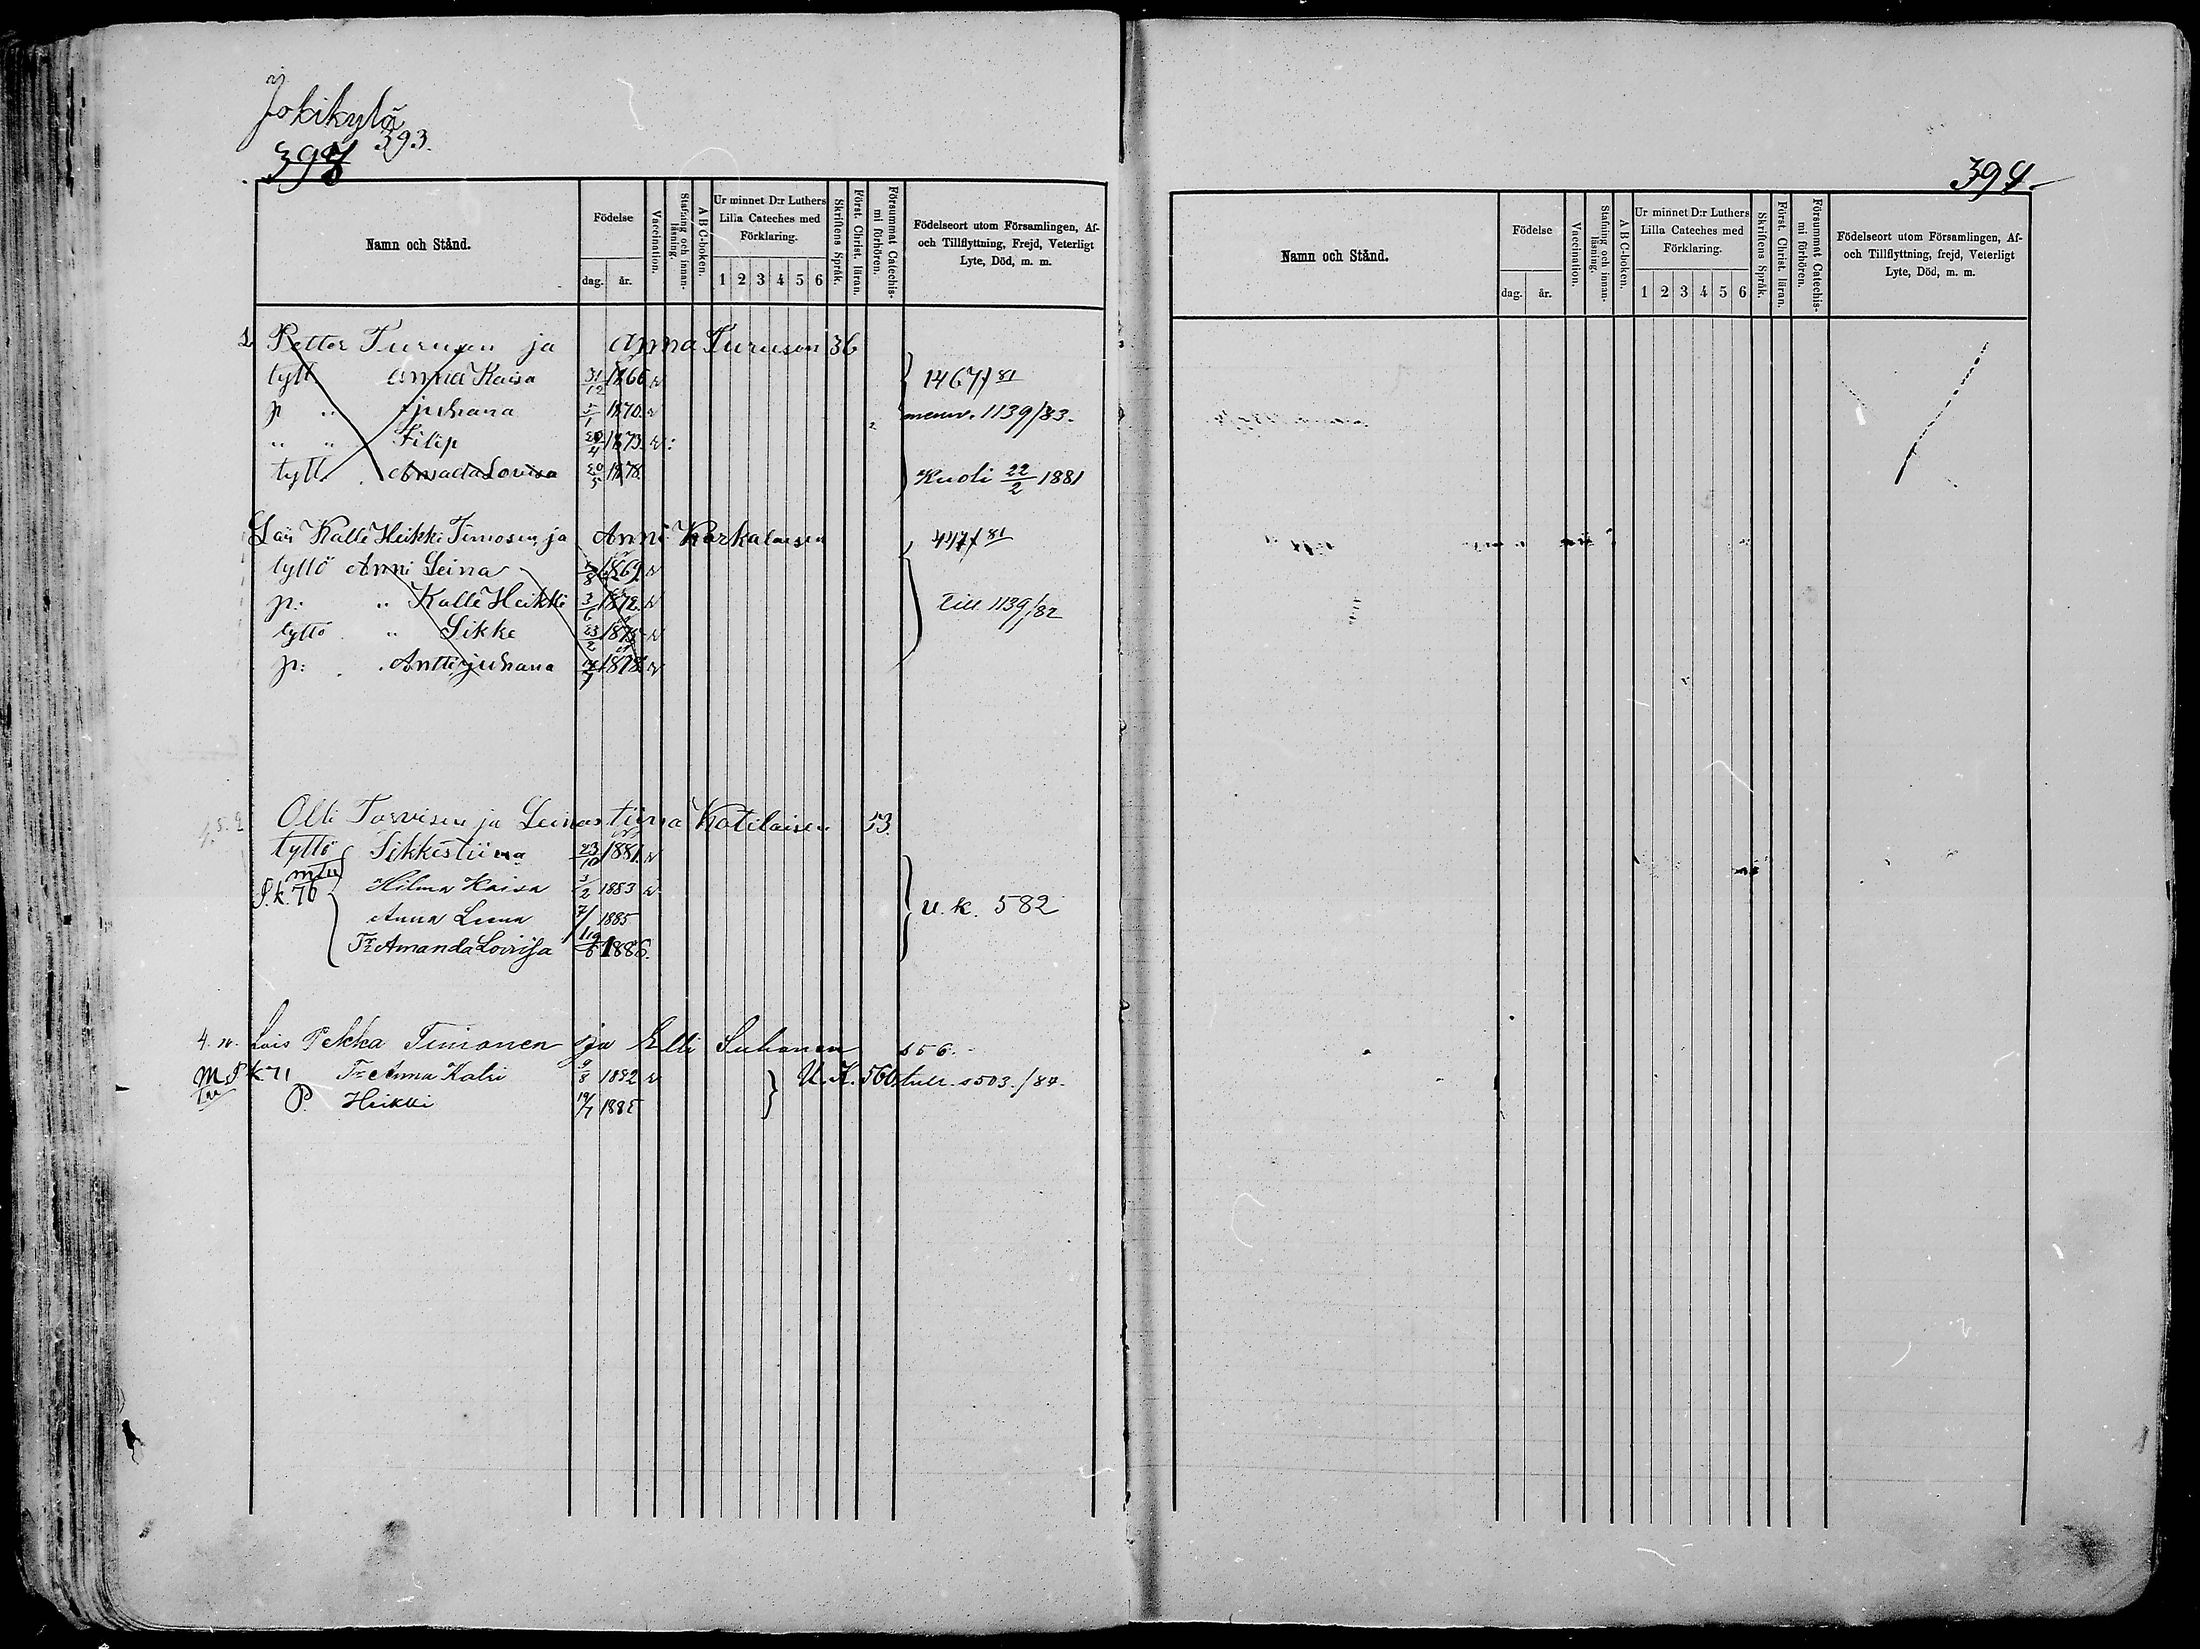 Jokikylä
393.
Namn och Stånd.
Födelse
dag.
år.
Vaccination.
Stafning och innanläsning.
A B C-boken.
Ur minnet D:r Luthers
Lilla Cateches med
Förklaring.
1 2 3 4 5 6
Skriftens Språk.
Först. Christ. läran.
Försummat Catechismi förhören.
Födelseort utom Församlingen, Af-
och Tillflyttning, Frejd, Veterligt
Lyte, Död, m. m.
Petter Turunen ja Anna Turusen 36
tytt. Anna Kaisa 31/12 1866 v 1467/81
p " Juhana 1870 v 1139/83.
" " Filip 20/4 1873 v
tytt. Amada Lovisa 20/5 1878. Kuoli 22/2 1881
Kalle Heikki Timosen ja Anni Karkalaisen 447/81
tyttö Anni Leina 1869 v
p: " Kalle Heikki 3/6 1872 v Till 1139/82
tyttö " Sikke 23/2 1875 v
p: " Antti juhana 1878 v
Olli Torvisen ja Leinastiina Kotilaisen 53.
tyttö Sikkestiina 23/10 1881. v
S.k. 70 Hilma Kaisa 3/2 1883 v
Anna Leena 7/1 1885 U. k. 582
Tr Amanda Lovisa 19/6 1886.
Lois Pekka Timonen ja Elli Suhonen s 56.
Tr Anna Katri 9/8 1892 v U. K. 560. s 503./84.
P. Heikki 19/7 1885
394
Namn och Stånd.
Födelse
dag.
år.
Vaccination.
Stafning och innanläsning.
A B C-boken.
Ur minnet D:r Luthers
Lilla Cateches med
Förklaring.
1 2 3 4 5 6
Skriftens Språk.
Först. Christ. läran.
Försummat Catechismi förhören.
Födelseort utom Församlingen, Af-
och Tillflyttning, frejd, Veterligt
Lyte, Död, m. m.